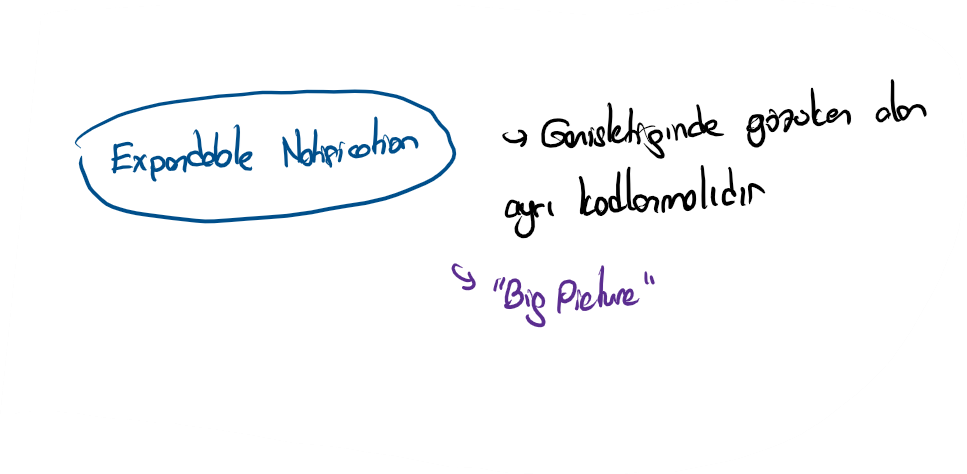 Expandable Notification
↪ Genişlettiğinde gözüken alan
ayrı kodlanmalıdır
↪ "Big Picture"